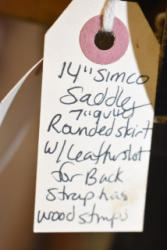 14" Simco
Saddle
7" gullet
Rounded skirt
W/Leather slot
for Back
Strap has
wood stirrups